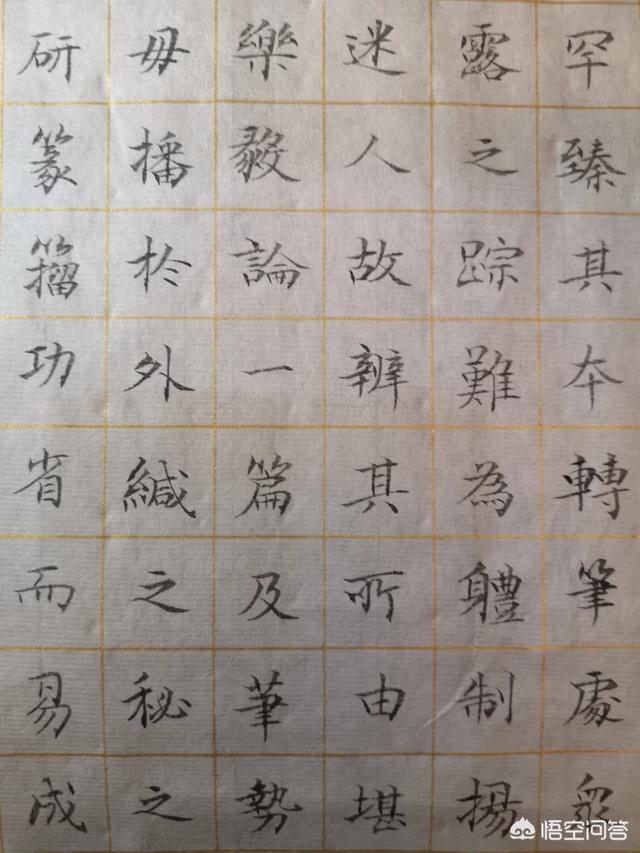 罕臻其夲轉筆處衆
露之踪難為軆制揚
迷人故辨其所由堪
樂毅論一篇及筆勢
毋播扵外緘之秘之
研篆籀功省而易成
悟空问答